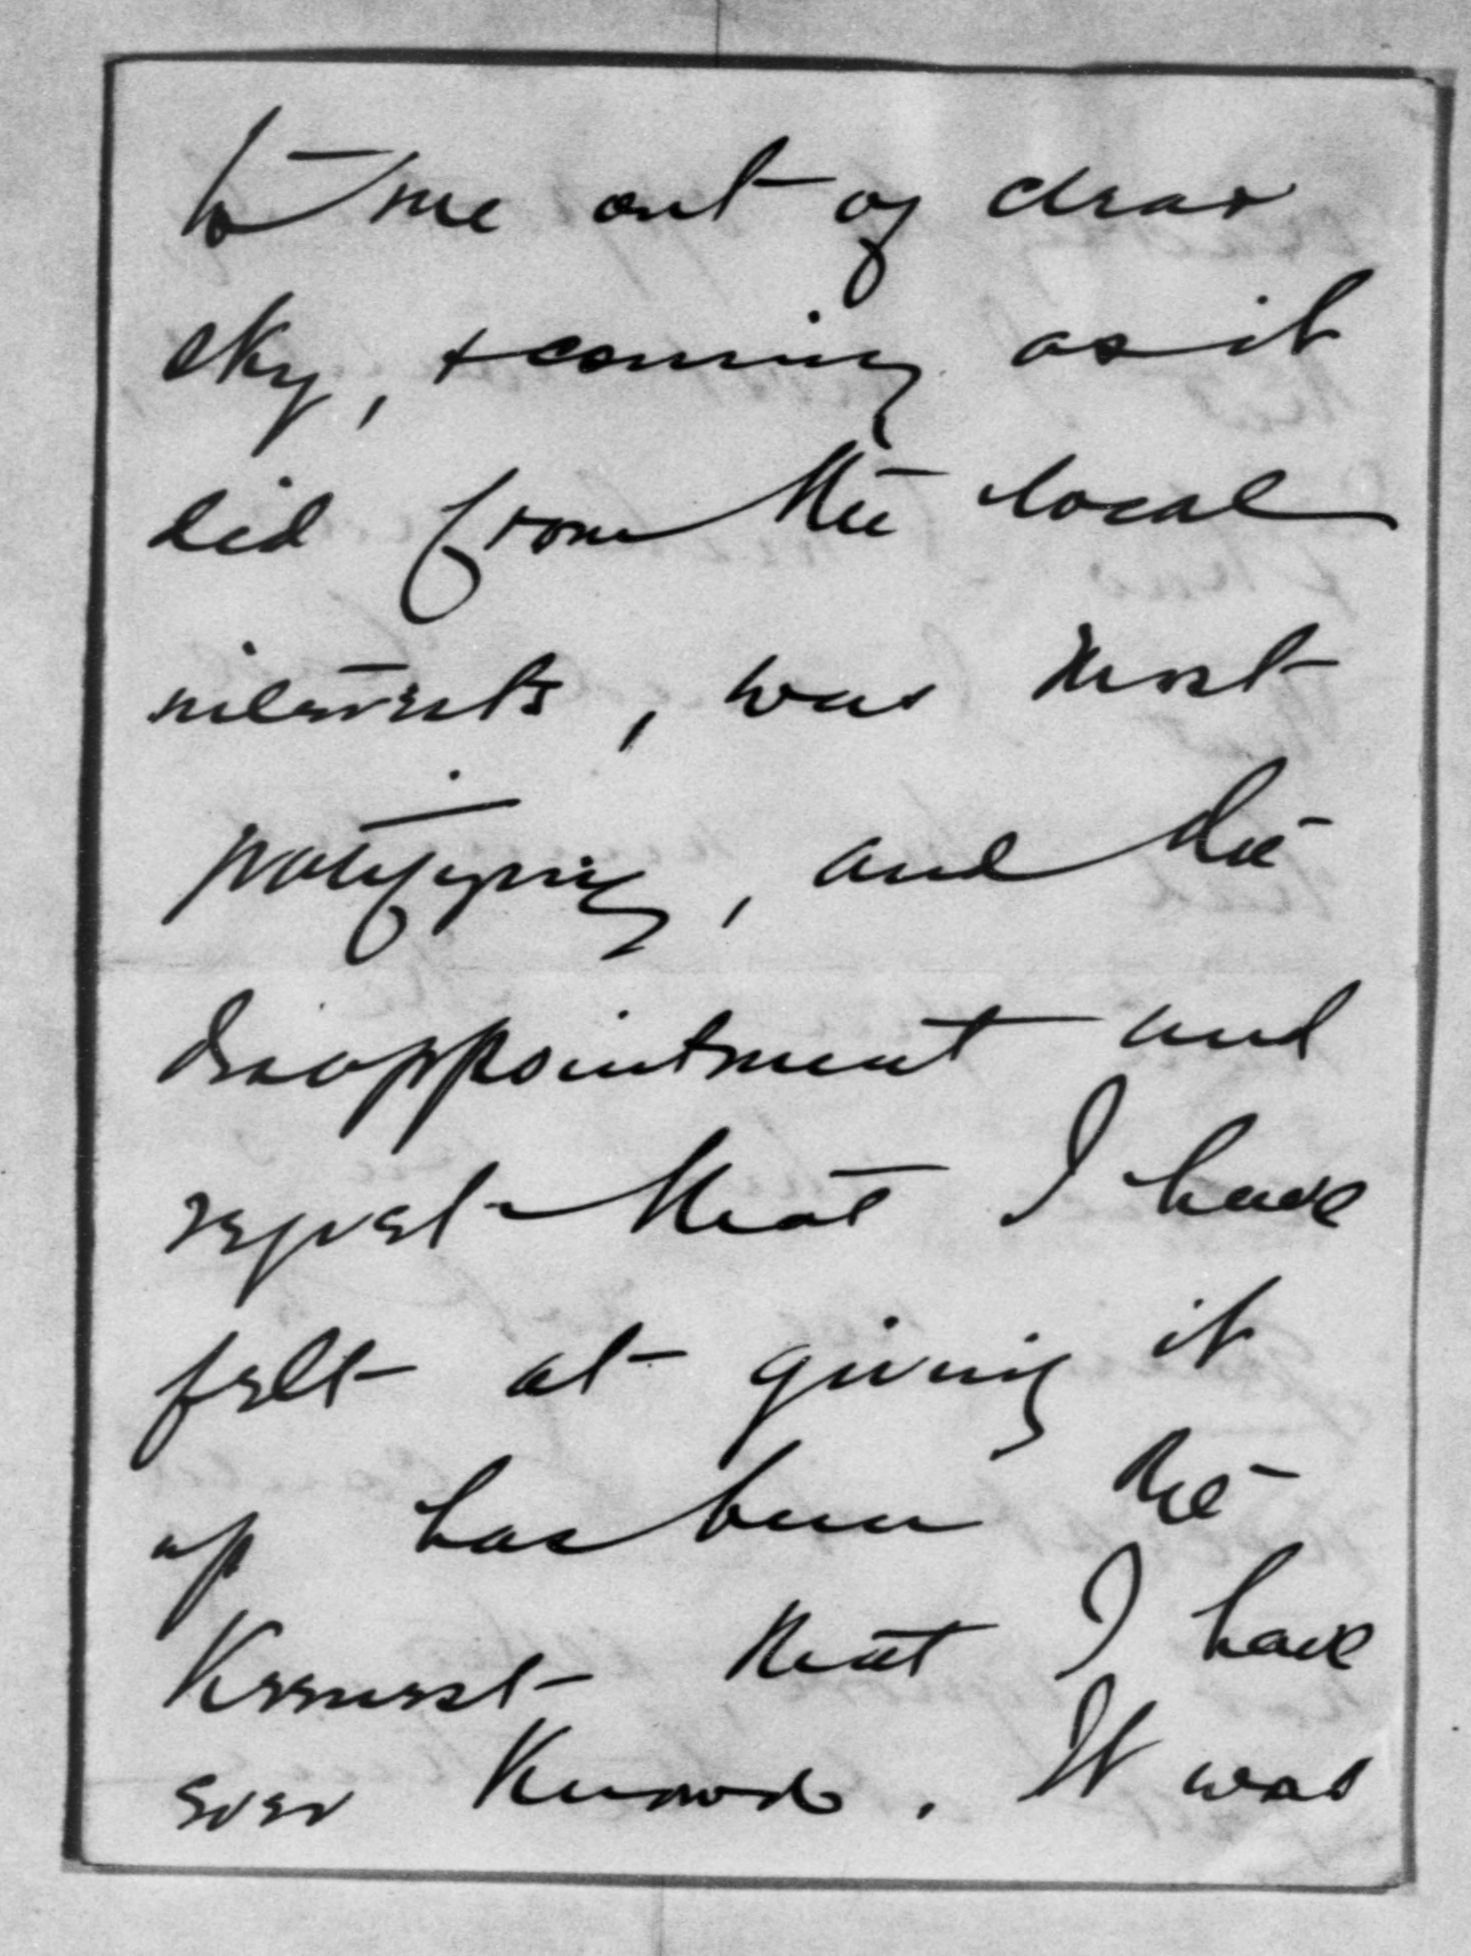 to me out of clear
sky, + coming as it
did from the local
interests, was most
gratifying, and the
disappointment and
regret that I have
felt at giving it
up has been the
keenest that I have
ever known. It was